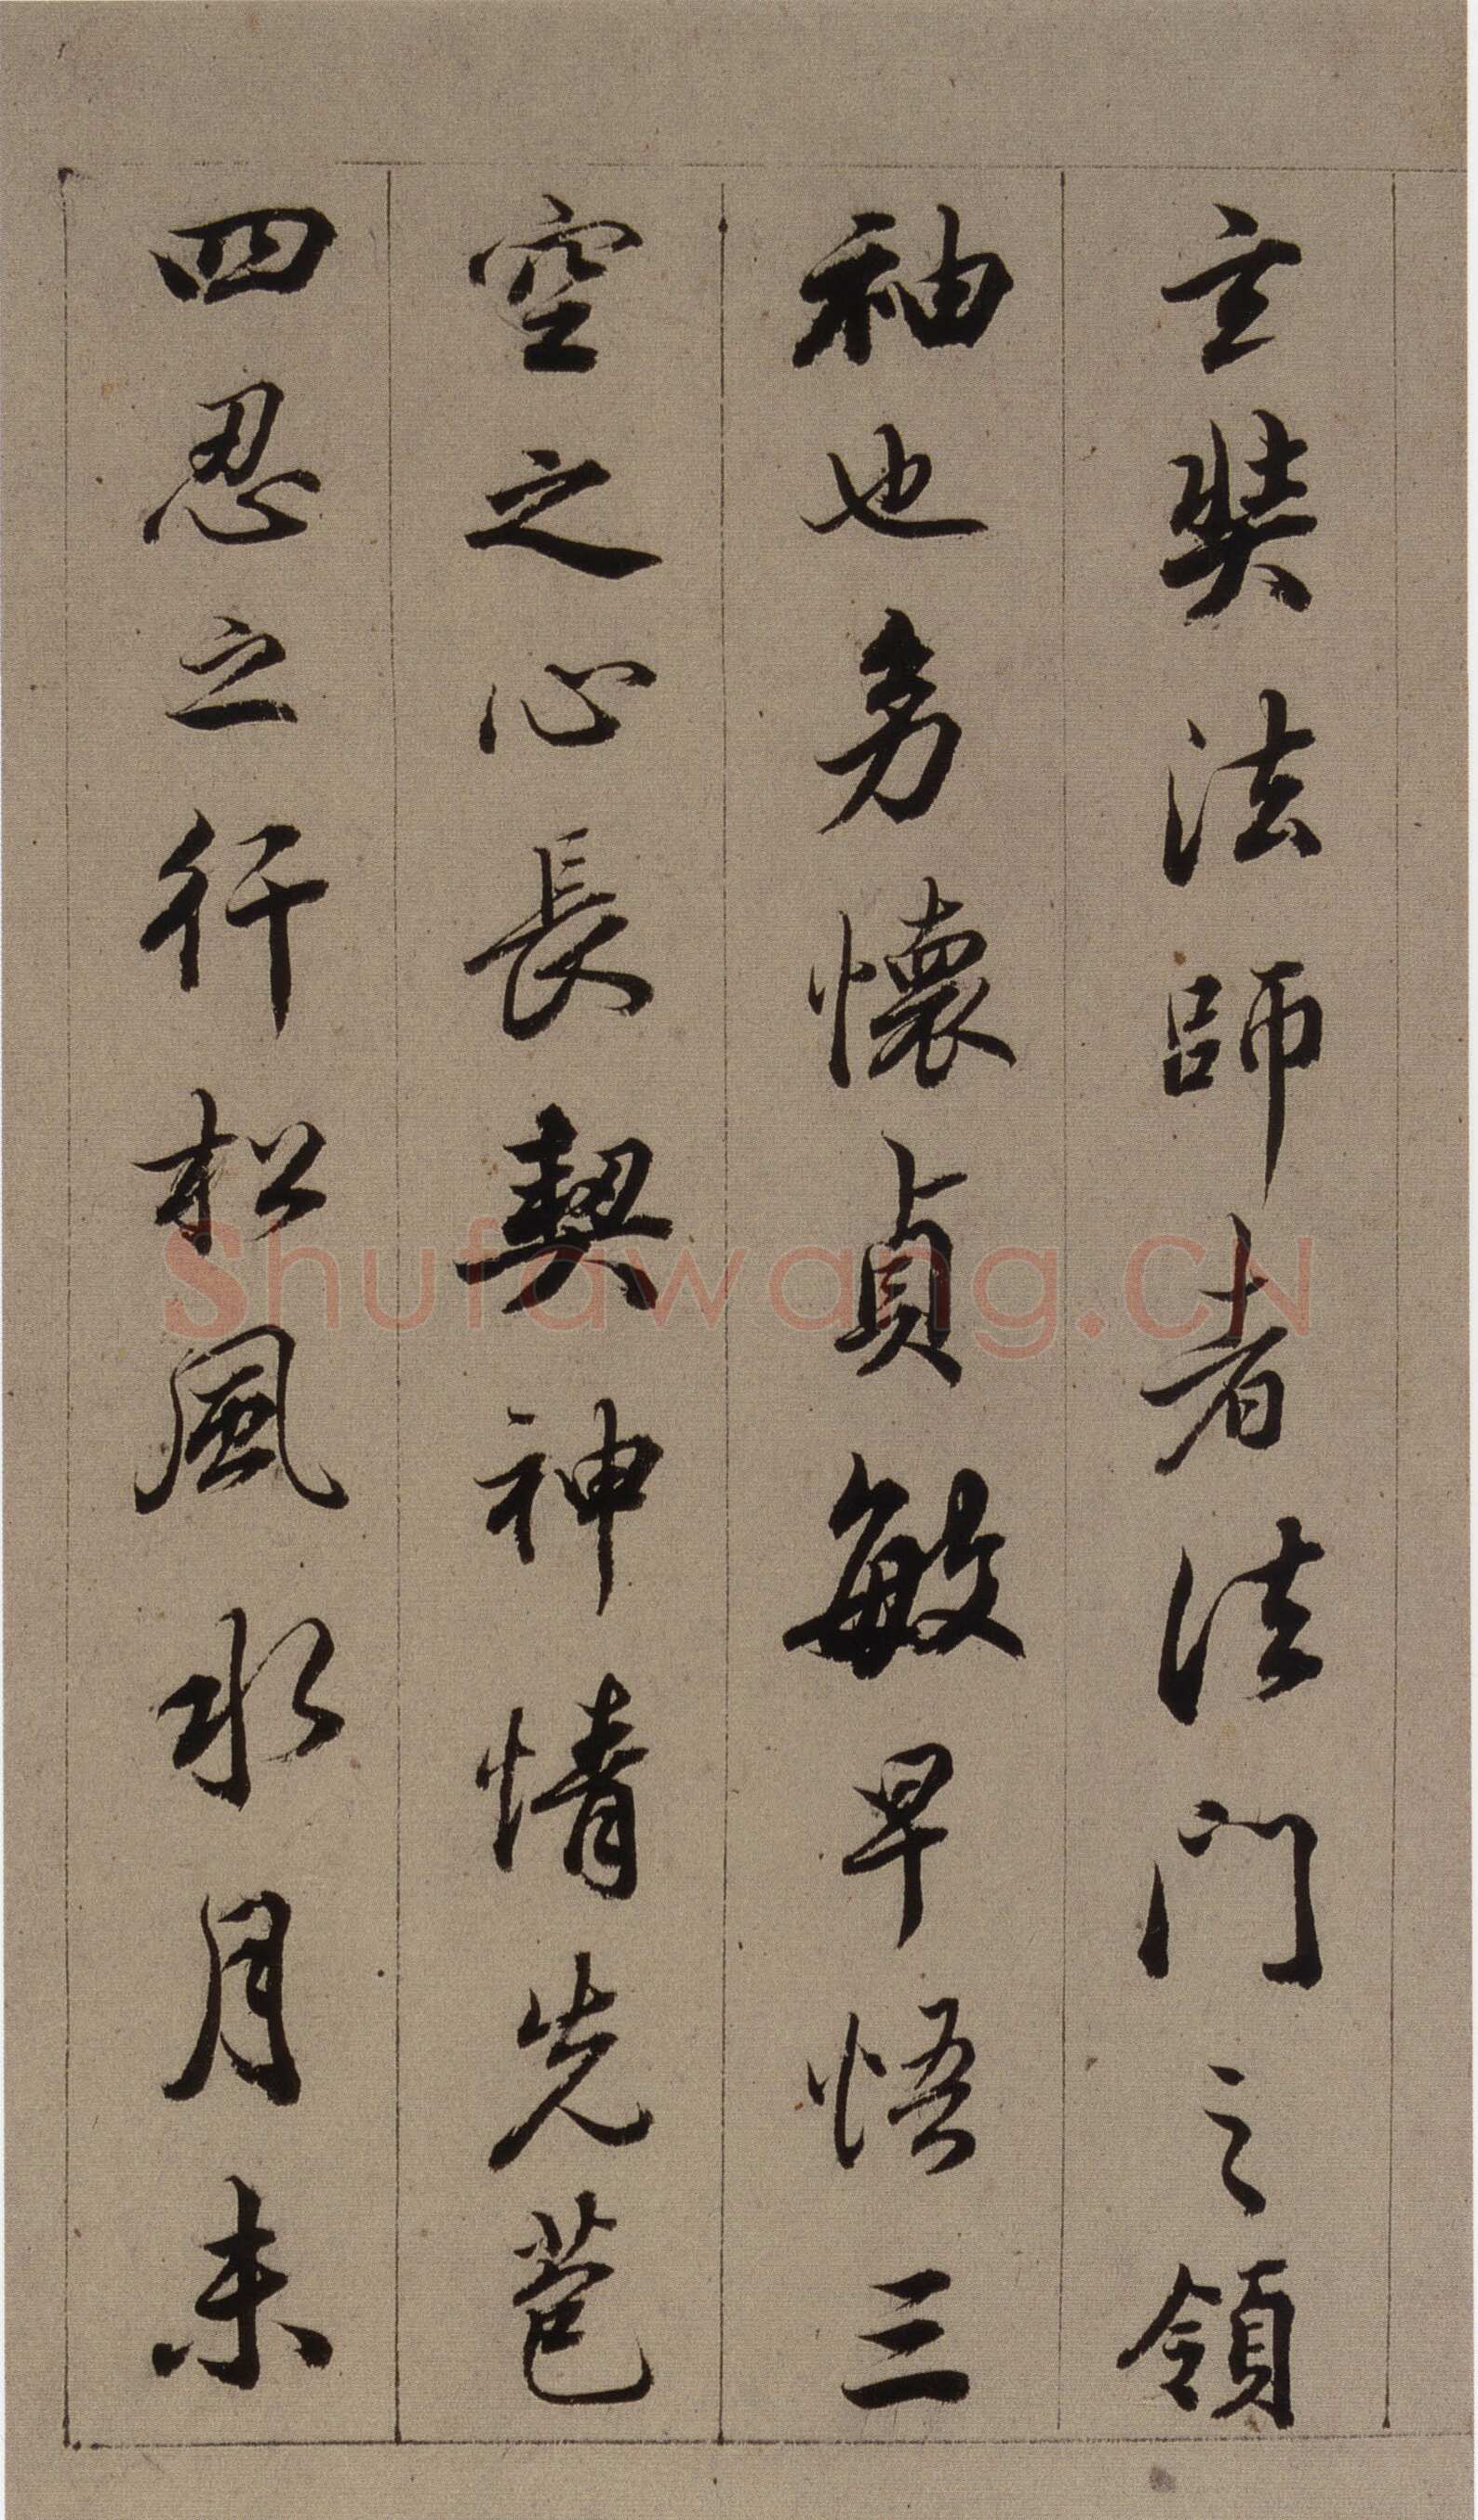 玄奘法師者法門之領
袖也多懷貞敏早悟三
空之心長契神情先苞
四忍之行松風水月未
Shufawang.CN